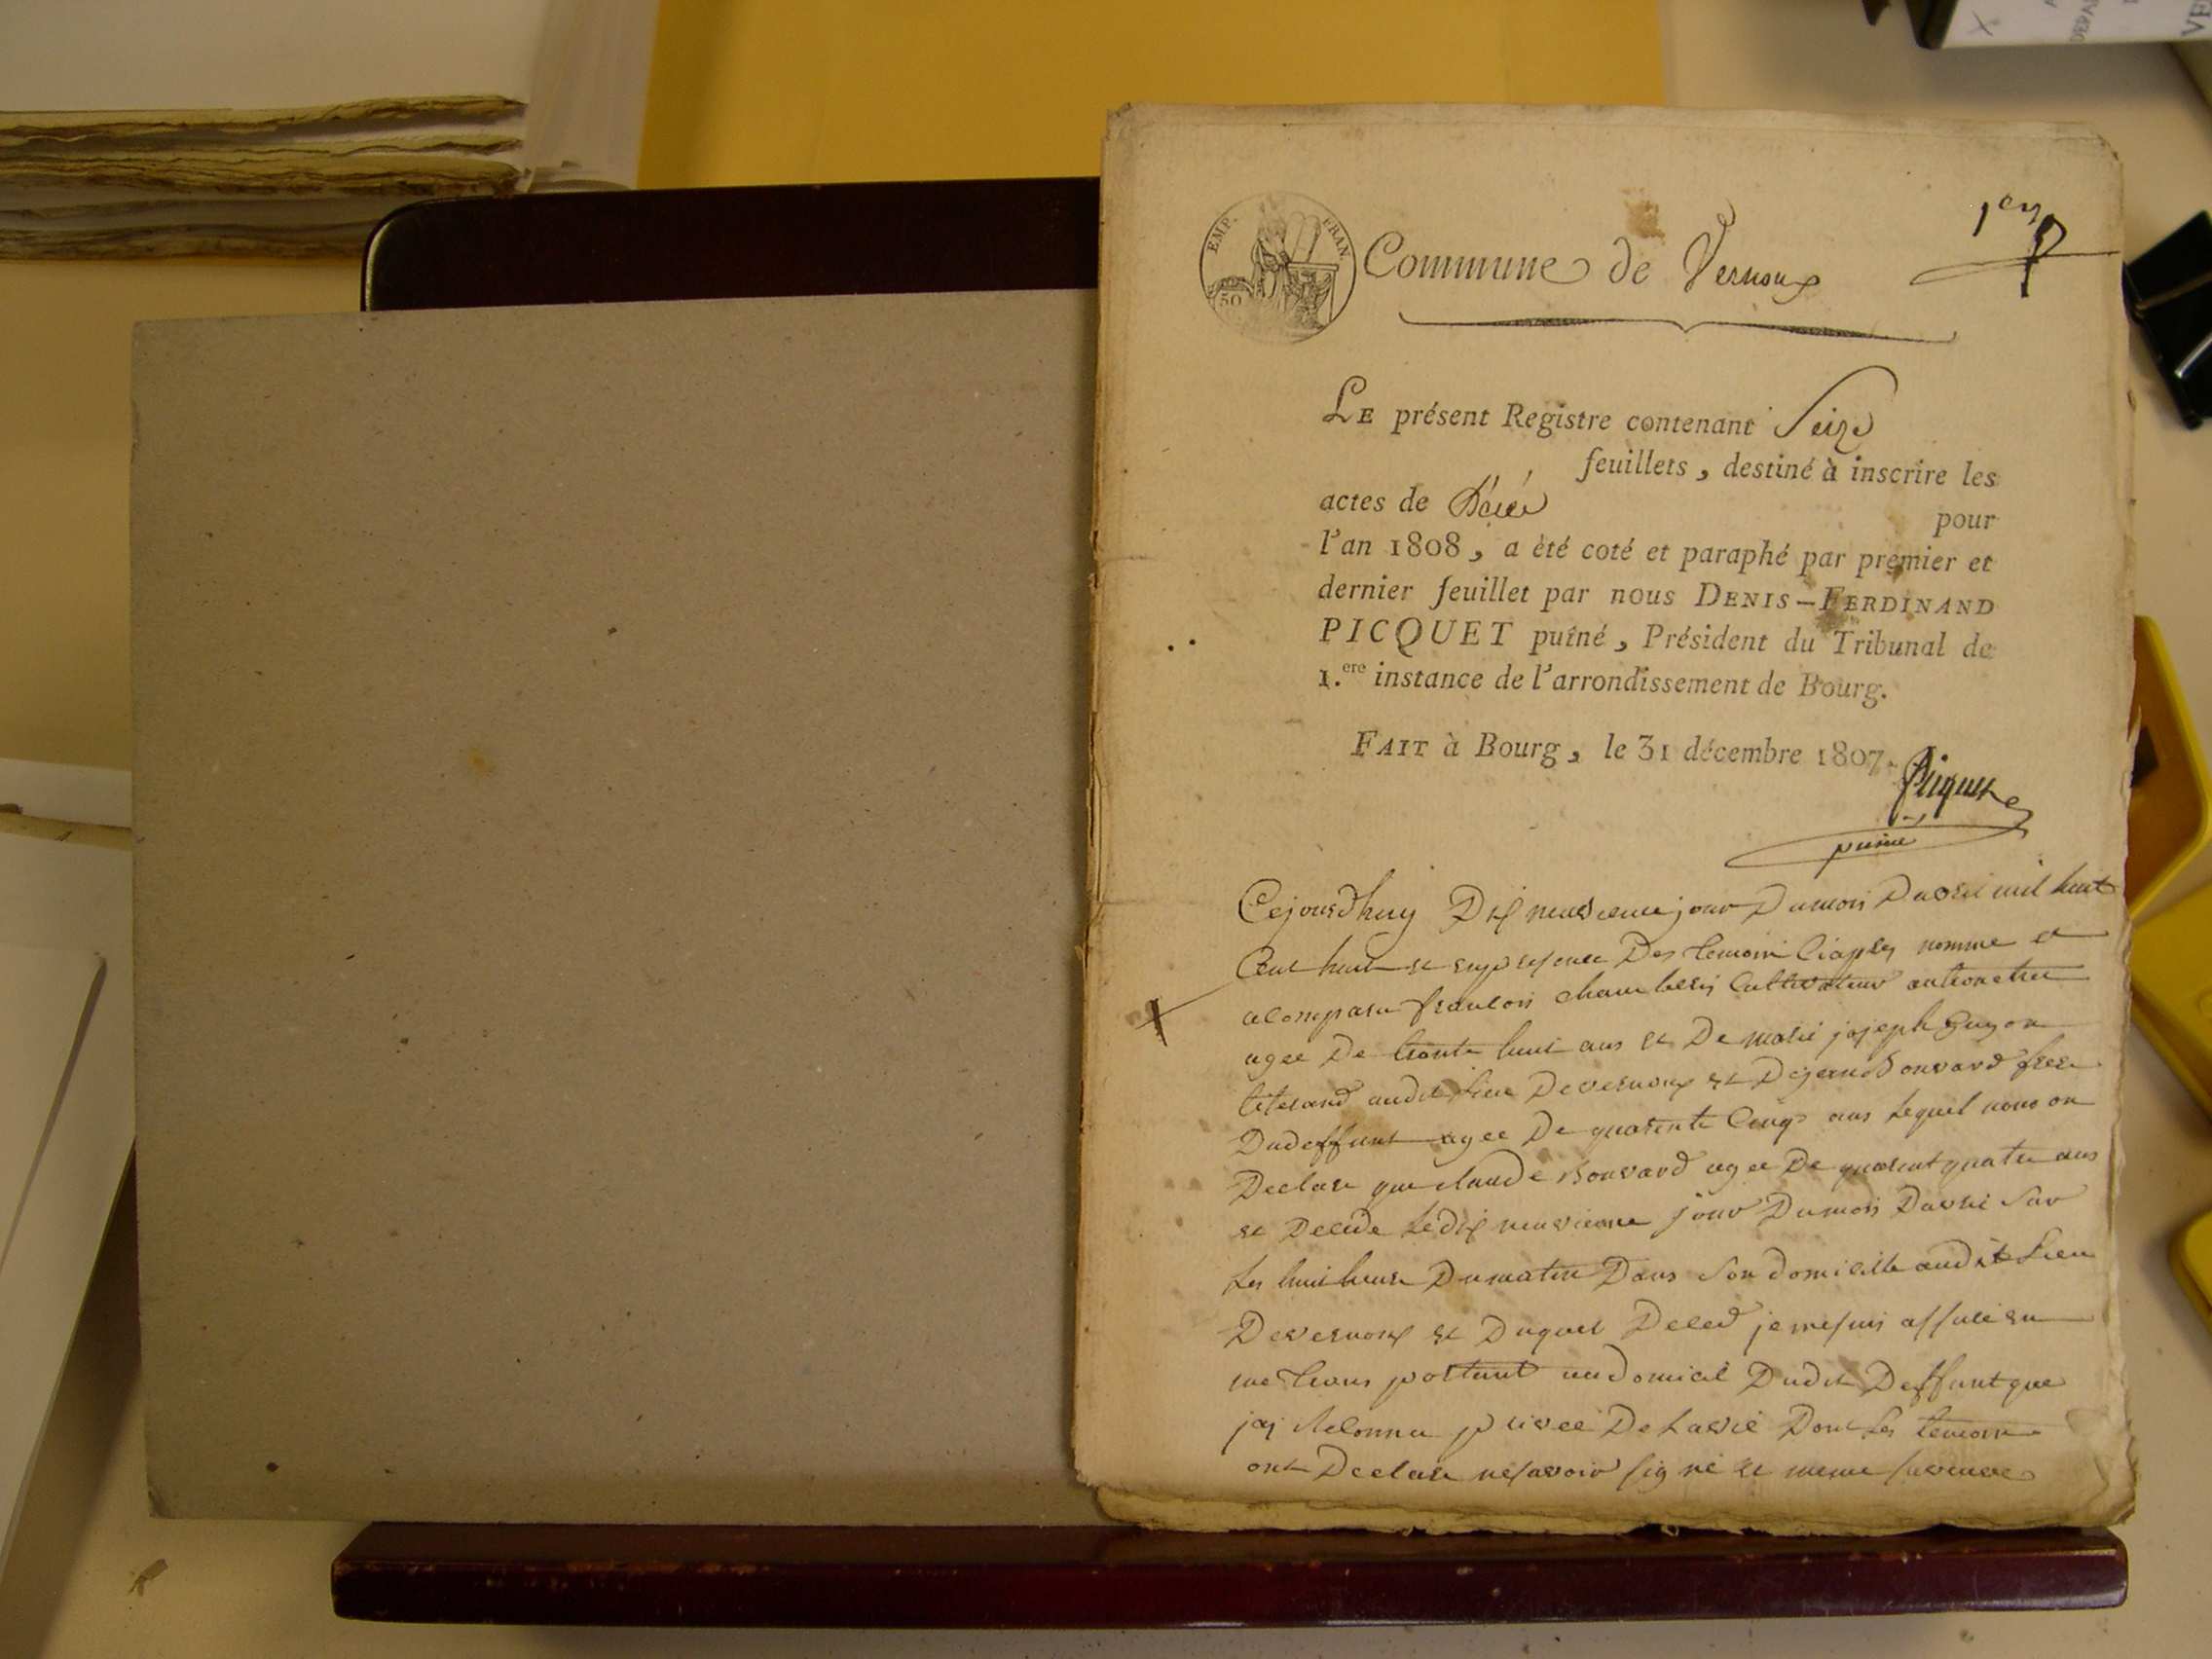 EMP. FRAN.
50
1er
Commune de Vernoux
LE présent Registre contenant Seize
feuillets, destiné à inscrire les
actes de Décés
pour
l'an 1808, a èté coté et paraphé par premier et
dernier feuillet par nous DENIS-FERDINAND
PICQUET puîné, Président du Tribunal de
1.ere instance de l'arrondissement de Bourg.
FAIT à Bourg, le 31 décembre 1807.
Picquet
puiné
Cejourdhuy Dix neuvieme jour Dumois Davril mil huit
Cent huit et enpresence Des temoin Ciapres nomme et
acomparu francois chamberi Cultivateur
agee De trante huit ans et De joseph guyon
audit Lieu Devernoux et Dejean Bonvard frere
Dudeffunt agee De quarente Cinq ans Lequel nous on
Declare que claude Bonvard agee De quarent quatre ans
et Decede Ledix neuvieme jour Dumois Davril Sur
Les huit heure Dumatin Dans Son domicille audit Lieu
Devernoux et Duquel Deced jemesuis assuré en
me transportant audomicil Dudit Deffunt que
jai Reconnu privee De Lavie Dont Les temoin
ont Declare nesavoir signé et meme
VE